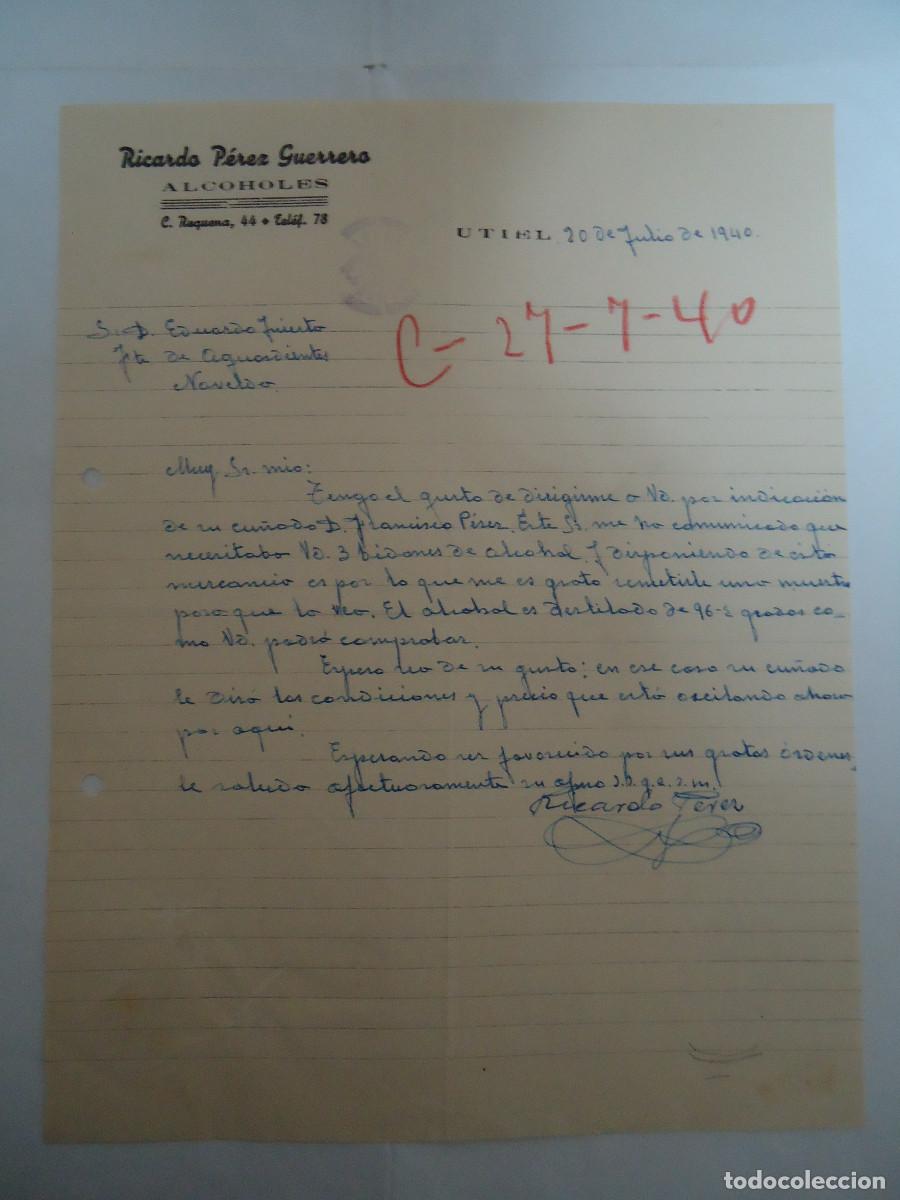 Ricardo Pérez Guerrero
ALCOHOLES
C. Requena, 44 • Teléf. 78
UTIEL 20 de Julio de 1940.
C- 27-7-40
S. D. Eduardo
de Aguardientes
Novelda.
Muy Sr. mio:
Tengo el gusto de dirigirme a Vd. por indicación
de su cuñado D. Francisco Pérez. Este Sr. me ha comunicado que
necesitaba Vd. 3 bidones de alcohol y disponiendo de esta
mercancia es por lo que me es grato remitirle una muestra
para que la vea. El alcohol es destilado de 96-2 grados co-
mo Vd. podrá comprobar.
Espero sea de su gusto; en ese caso su cuñado
le dirá las condiciones y precio que está oscilando ahora
por aquí.
Esperando ser favorecido por sus gratas órdenes,
le saluda afectuosamente su afmo s.s.q.e.s.m.
Ricardo Perez
todocoleccion